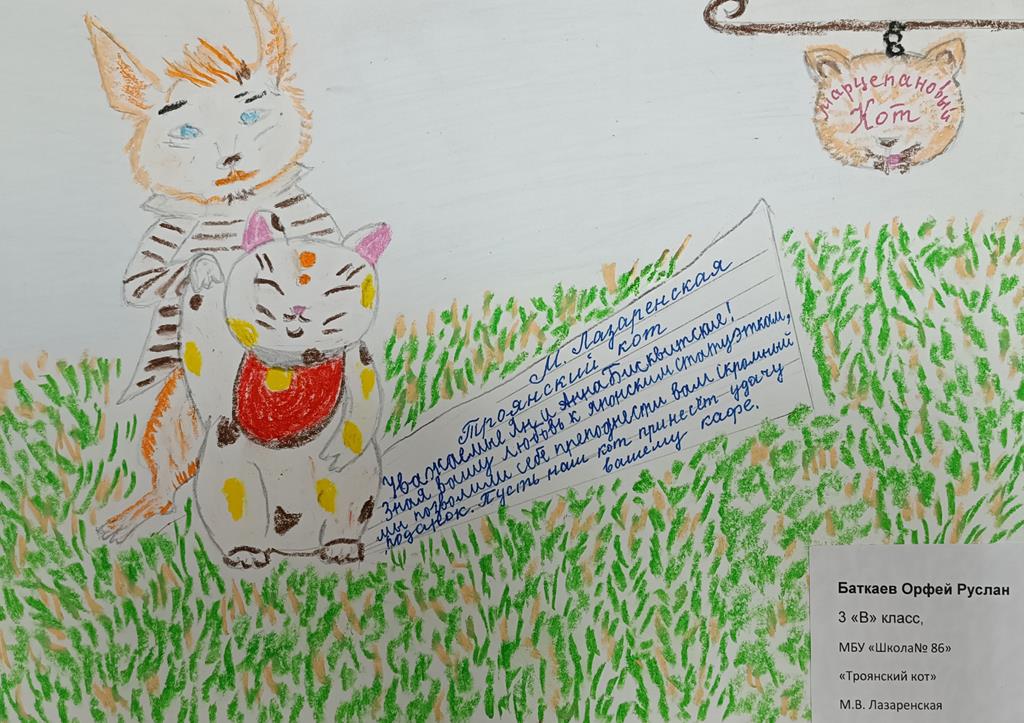 Марцепановый
Кот
М Лазаренская
Троянский кот
Уважаемые Ян и Анна Бисквитские!
Зная вашу любовь к японским статуэткам,
мы позволили себе преподнести вам скромный
подарок. Пусть наш кот принесёт удачу
вашему кафе.
Баткаев Орфей Руслан
3 «В» класс,
МБУ «Школа№ 86»
«Троянский кот»
М.В. Лазаренская